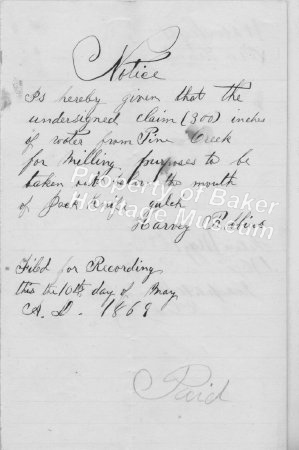 Notice
Is hereby given that the
undersigned claim (300) inches
of water from Pine Creek
for Milling purposes to be
taken out the mouth
of Jack gulch
Harvey
Property of Baker
Heritage Museum
Filed for Recording
this the 10th day of May
A. D. 1869
Paid